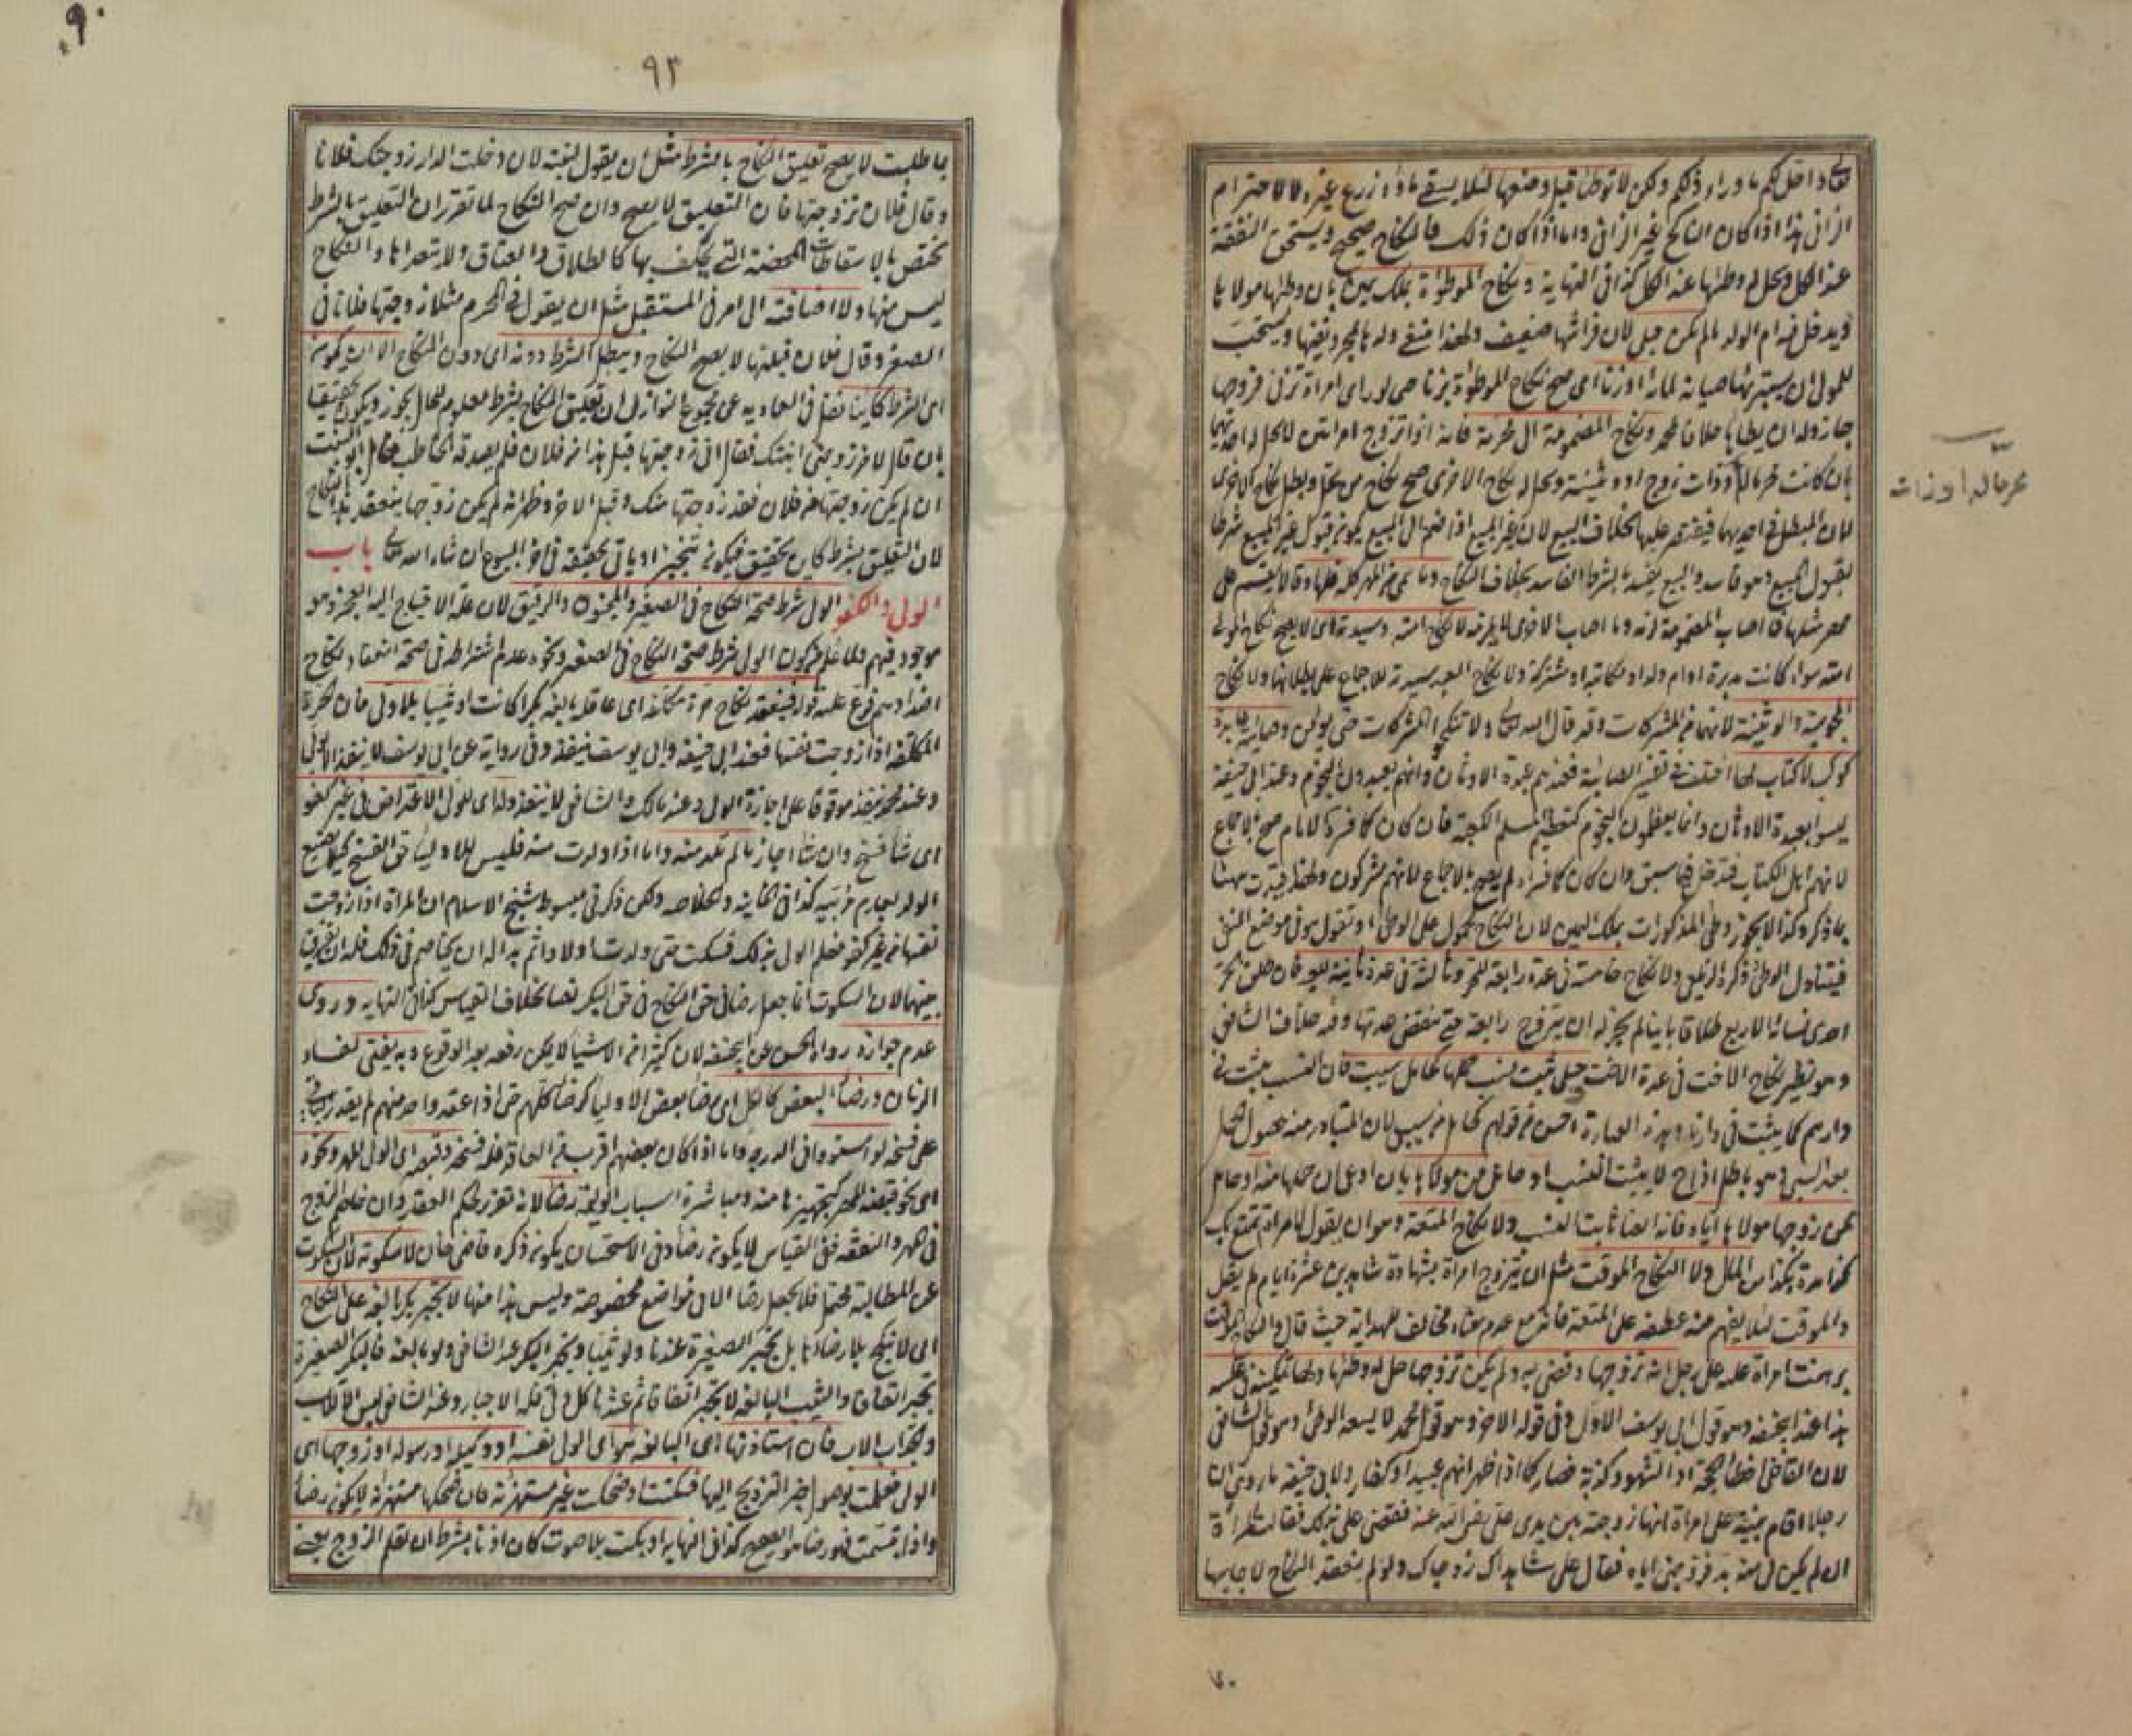 تعالى واحل لكم ما وراء ذلكم ولكن لا توطأ قبل وضعها لئلا يسقي ماؤه زرع غيره لا لاحترام
الزاني هذا اذا كان الناكح غير الزاني واما اذا كان ذلك فالنكاح صحيح ويستحق النفقة
عند الكل ويحل له وطئها عند الكل كذا في النهاية ونكاح الموطؤة بملك يمين بان وطئها مولاها
ويدخل فيه ام الولد ما لم تكن حبلى لان فراشها ضعيف ولهذا ينتفي ولدها بمجرد نفيها ويستحب
للمولى ان يستبرئها صيانة لمائه او زنا اى صح نكاح الموطؤة بزنا حتى لو راى امراة تزني فتزوجها
جاز وله ان يطاها خلافا لمحمد ونكاح المضمومة الى محرمة فانه اذا تزوج امراتين لا يحل له احديهما
بان كانت محرما له او ذات زوج او وثنية ويحل له نكاح الاخرى صح نكاح من يحل وبطل نكاح الاخرى
لان المبطل في احديهما فيقتصر عليها بخلاف البيع لان غير المبيع اذا ضم الى المبيع يكون قبول غير المبيع شرطا
لقبول المبيع وهو فاسد والبيع يفسد بالشرط الفاسد بخلاف النكاح وما سمى من المهر كله لها وقالا يقسم على
مهر مثليهما فما اصاب المضمومة لزمه وما اصاب الاخرى لا يلزمه لا نكاح امته وسيدته اى لا يصح نكاح المولى
امته سواء كانت مدبرة او ام ولد او مكاتبة او مشتركة ولا نكاح العبد سيدته للاجماع على بطلانها ولا نكاح
المجوسية والوثنية لانهما من المشركات وقد قال الله تعالى ولا تنكحوا المشركات حتى يؤمن وصابئة عابدة
كوكب لا كتاب لها اختلف في تفسير الصابئة فعندهما هم عبدة الاوثان وانهم يعبدون النجوم وعند ابي حنيفة
ليسوا بعبدة الاوثان وانما يعظمون النجوم كتعظيم المسلم الكعبة فان كان كما فسره الامام صح بالاجماع
لانهم اهل الكتاب فتدخل فيما سبق وان كان كما فسراه لم يصح بالاجماع لانهم مشركون ولهذا قيدت هنا
بما ذكر وكذا لا يجوز وطى المذكورات بملك اليمين لان النكاح محمول على الوطى او تقول هو في موضع النفي
فيتناول الوطى ذكره الزيلعي ولا نكاح خامسة في عدة رابعة للحر وثالثة في عدة ثانية للعبد فان طلق الحر
احدى نسائه الاربع طلاقا باينا لم يجز له ان يتزوج رابعة حتى تنقضي عدتها وفيه خلاف الشافعي
وهو نظير نكاح الاخت في عدة الاخت وحبلى ثبت نسب حملها كحامل سبيت فان النسب يثبت في
دارهم كما يثبت في دارنا وهذه العبارة احسن من قولهم كحامل من سبي لان المتبادر منه حصول الحمل
بعد السبي وهو باطل اذ ح لا يثبت النسب او حامل من مولاها بان ادعى ان حملها منه او حامل
ممن زوجها مولاها اياه فانه ايضا ثابت النسب ولا نكاح المتعة وهو ان يقول لامراة تمتع بك
كذا مدة بكذا من المال ولا النكاح الموقت مثل ان يتزوج امراة بشهادة شاهدين عشرة ايام لم يقل
والموقت لئلا يفهم منه عطفه على المتعة فانه مع عدم معناه مخالف للهداية حيث قال والنكاح الموقت
برهنت امراة عليه على رجل انه تزوجها وقضى به ولم يكن تزوجها حل له وطئها ولها تمكينه في عكسه
هذا عند ابي حنيفة وهو قول ابي يوسف الاول وفي قوله الاخر وهو قول محمد لا يسعه الوطى وهو قول الشافعي
لان القاضي اخطأ الحجة اذ الشهود كذبة فصار كما اذا ظهر انهم عبيد او كفار ولابي حنيفة ما روي ان
رجلا اقام بينة على امراة انها زوجته بين يدى علي رضي الله عنه فقضى علي بذلك فقالت المراة
ان لم يكن لي منه بد فزوجني اياه فقال علي شاهداك زوجاك ولو لم ينعقد النكاح لاجابها
محرما له او ذات
٩٢
بما طلبت لا يصح تعليق النكاح بالشرط مثل ان يقول لبنته لان دخلت الدار زوجتك فلانا
وقال فلان تزوجتها فان التعليق لا يصح وان صح النكاح لما تقرر ان التعليق بالشرط
يختص بالاسقاطات المحضة التي يحلف بها كالطلاق والعتاق ولا يتعداها والنكاح
ليس منها ولا اضافته الى امر في المستقبل مثل ان يقول في المحرم مثلا زوجتها فلانا في
الصفر وقال فلان قبلتها لا يصح النكاح ويبطل الشرط دونه اى دون النكاح الا ان يكون
اى الشرط كاينا نقل في العمادية عن مجموع النوازل ان تعليق النكاح بشرط معلوم للحال يجوز ويكون تحقيقا
بان قال لاخر زوجني ابنتك فقال اني زوجتها قبل هذا من فلان فلم يصدقه الخاطب فقال ابو البنت
ان لم يكن زوجتها من فلان فقد زوجتها منك وقبل الاخر وظهر انه لم يكن زوجها ينعقد هذا النكاح
لان التعليق بشرط كاين تحقيق فيكون تنجيزا وياتي تحقيقه في اخر البيوع ان شاء الله تعالى باب
الولي والكفو الولي شرط صحة النكاح في الصغير والمجنون والرقيق لان علة الاحتياج اليه العجز وهو
موجود فيهم ولما علم كون الولي شرط صحة النكاح في الصغير ونحوه عدم اشتراطه في صحة انعقاد نكاح
اضدادهم فرع عليه قوله فينعقد نكاح حرة مكلفة اى عاقلة بالغة بكرا كانت او ثيبا بلا ولي فان الحرة
المكلفة اذا زوجت نفسها فعند ابي حنيفة وابي يوسف ينعقد وفي رواية عن ابي يوسف لا ينعقد الا بولي
وعند محمد ينعقد موقوفا على اجازة الولي وعند مالك والشافعي لا ينعقد وله اى للولي الاعتراض في غير كفو
اى شاء فسخ وان شاء اجاز ما لم تلد منه واما اذا ولدت منه فليس للاولياء حق الفسخ كيلا يضيع
الولد لعدم مربيه كذا في الخانية والخلاصة ولكن ذكر في مبسوط شيخ الاسلام ان المراة اذا زوجت
نفسها من غير كفو فعلم الولي بذلك فسكت حتى ولدت اولادا ثم بدا له ان يخاصم في ذلك فله ان يفرق
بينهما لان السكوت انما جعل رضا في حق النكاح في حق البكر نصا بخلاف القياس كذا في النهاية وروى
عدم جوازه رواه الحسن عن ابي حنيفة لان كثيرا من الاشياء لا يمكن رفعه بعد الوقوع وبه يفتى لفساد
الزمان ورضاء البعض كالكل اى رضا بعض الاولياء كرضا كلهم حتى اذا عقد واحد منهم لم يقدر الباقي
على فسخه لو استووا في الدرجة واما اذا كان بعضهم اقرب من العاقد فله فسخه وقبضه اى الولي المهر ونحوه
اى نحو قبضه المهر كتجهيزها منه ومباشرة اسباب الوليمة رضا لانه تقرر حكم العقد وان خاصم الزوج
في المهر والنفقة ففي القياس لا يكون رضا وفي الاستحسان يكون ذكره قاضي خان لا سكوته لان السكوت
عن المطالبة محتمل فلا يجعل رضا الا في مواضع مخصوصة وليس هذا منها لا تجبر بكر بالغة على النكاح
اى لا ينكح بلا رضاها بل تجبر الصغيرة عندنا ولو ثيبا وتجبر البكر عند الشافعي ولو بالغة فالبكر الصغيرة
تجبر اتفاقا والثيب البالغة لا تجبر اتفاقا ثم عندنا كل ولي فله الاجبار وعند الشافعي ليس الا للاب
والجد اب الاب فان استاذنها اى البالغة هو اى الولي نفسه او وكيله او رسوله او زوجها اى
الولي فعلمت بوصول خبر التزويج اليها فسكتت او ضحكت غير مستهزئة فان ضحكها مستهزئة لا يكون رضا
واذا تبسمت فهو رضا هو الصحيح كذا في النهاية او بكت بلا صوت كان اذنا بشرط ان تعلم الزوج يعني